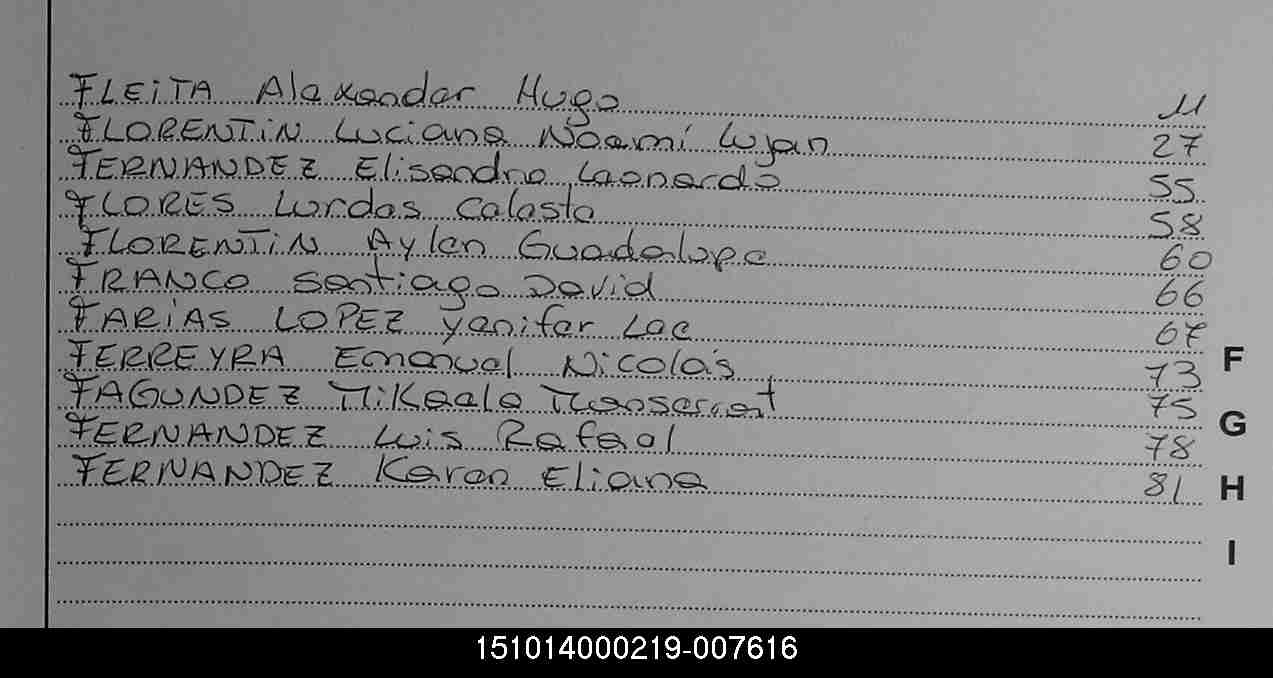 FLEITA Alexander Hugo 11
FLORENTIN Luciana Noemí Lujan 27
FERNANDEZ Elisandro Leonardo 55
FLORES Lurdes Celeste 58
FLORENTIN Aylen Guadalupe 60
FRANCO Santiago David 66
FARÍAS LOPEZ Yenifer Lae 67
FERREYRA Emanuel Nicolás 73
FAGUNDEZ Mikaela Monserrat 75
FERNANDEZ Luis Rafael 78
FERNANDEZ Karen Eliana 81
F
G
H
I
151014000219-007616